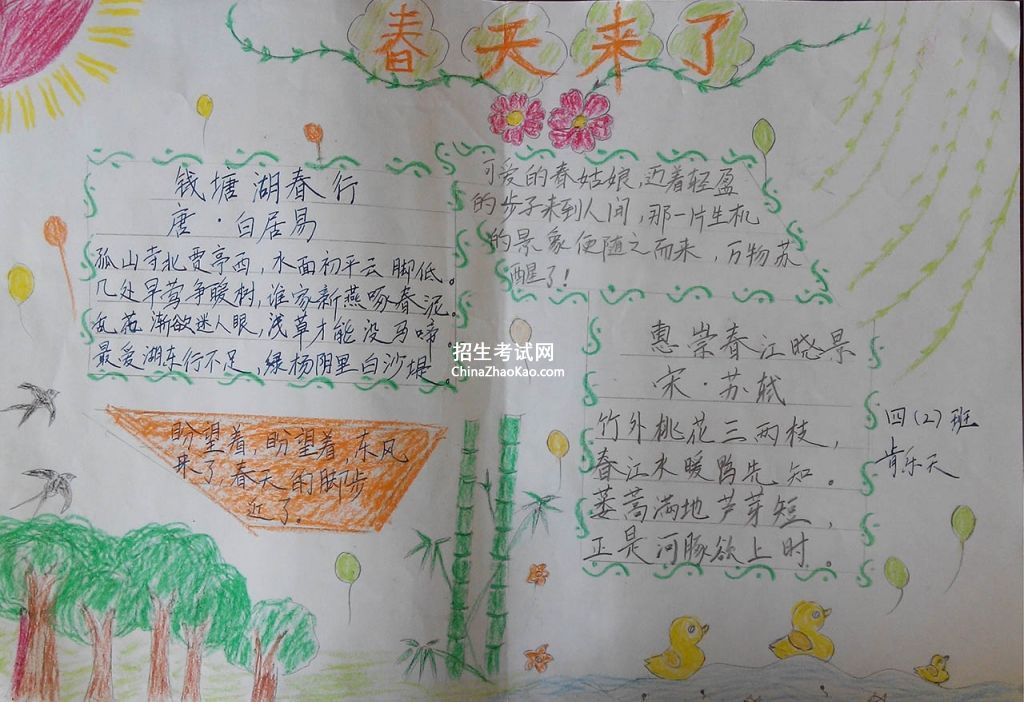 春天来了
钱塘湖春行
唐·白居易
孤山寺北贾亭西，水面初平云脚低。
几处早莺争暖树，谁家新燕啄春泥。
乱花渐欲迷人眼，浅草才能没马啼。
最爱湖东行不足，绿杨阴里白沙堤。
可爱的春姑娘，迈着轻盈
的步子来到人间，那一片生机
的景象便随之而来，万物苏
醒了！
盼望着，盼望着，东风
来了，春天的脚步
近了。
惠崇春江晓景
宋·苏轼
竹外桃花三两枝，
春江水暖鸭先知。
蒌蒿满地芦芽短，
正是河豚欲上时。
四（2）班
肯乐天
招生考试网
ChinaZhaoKao.com